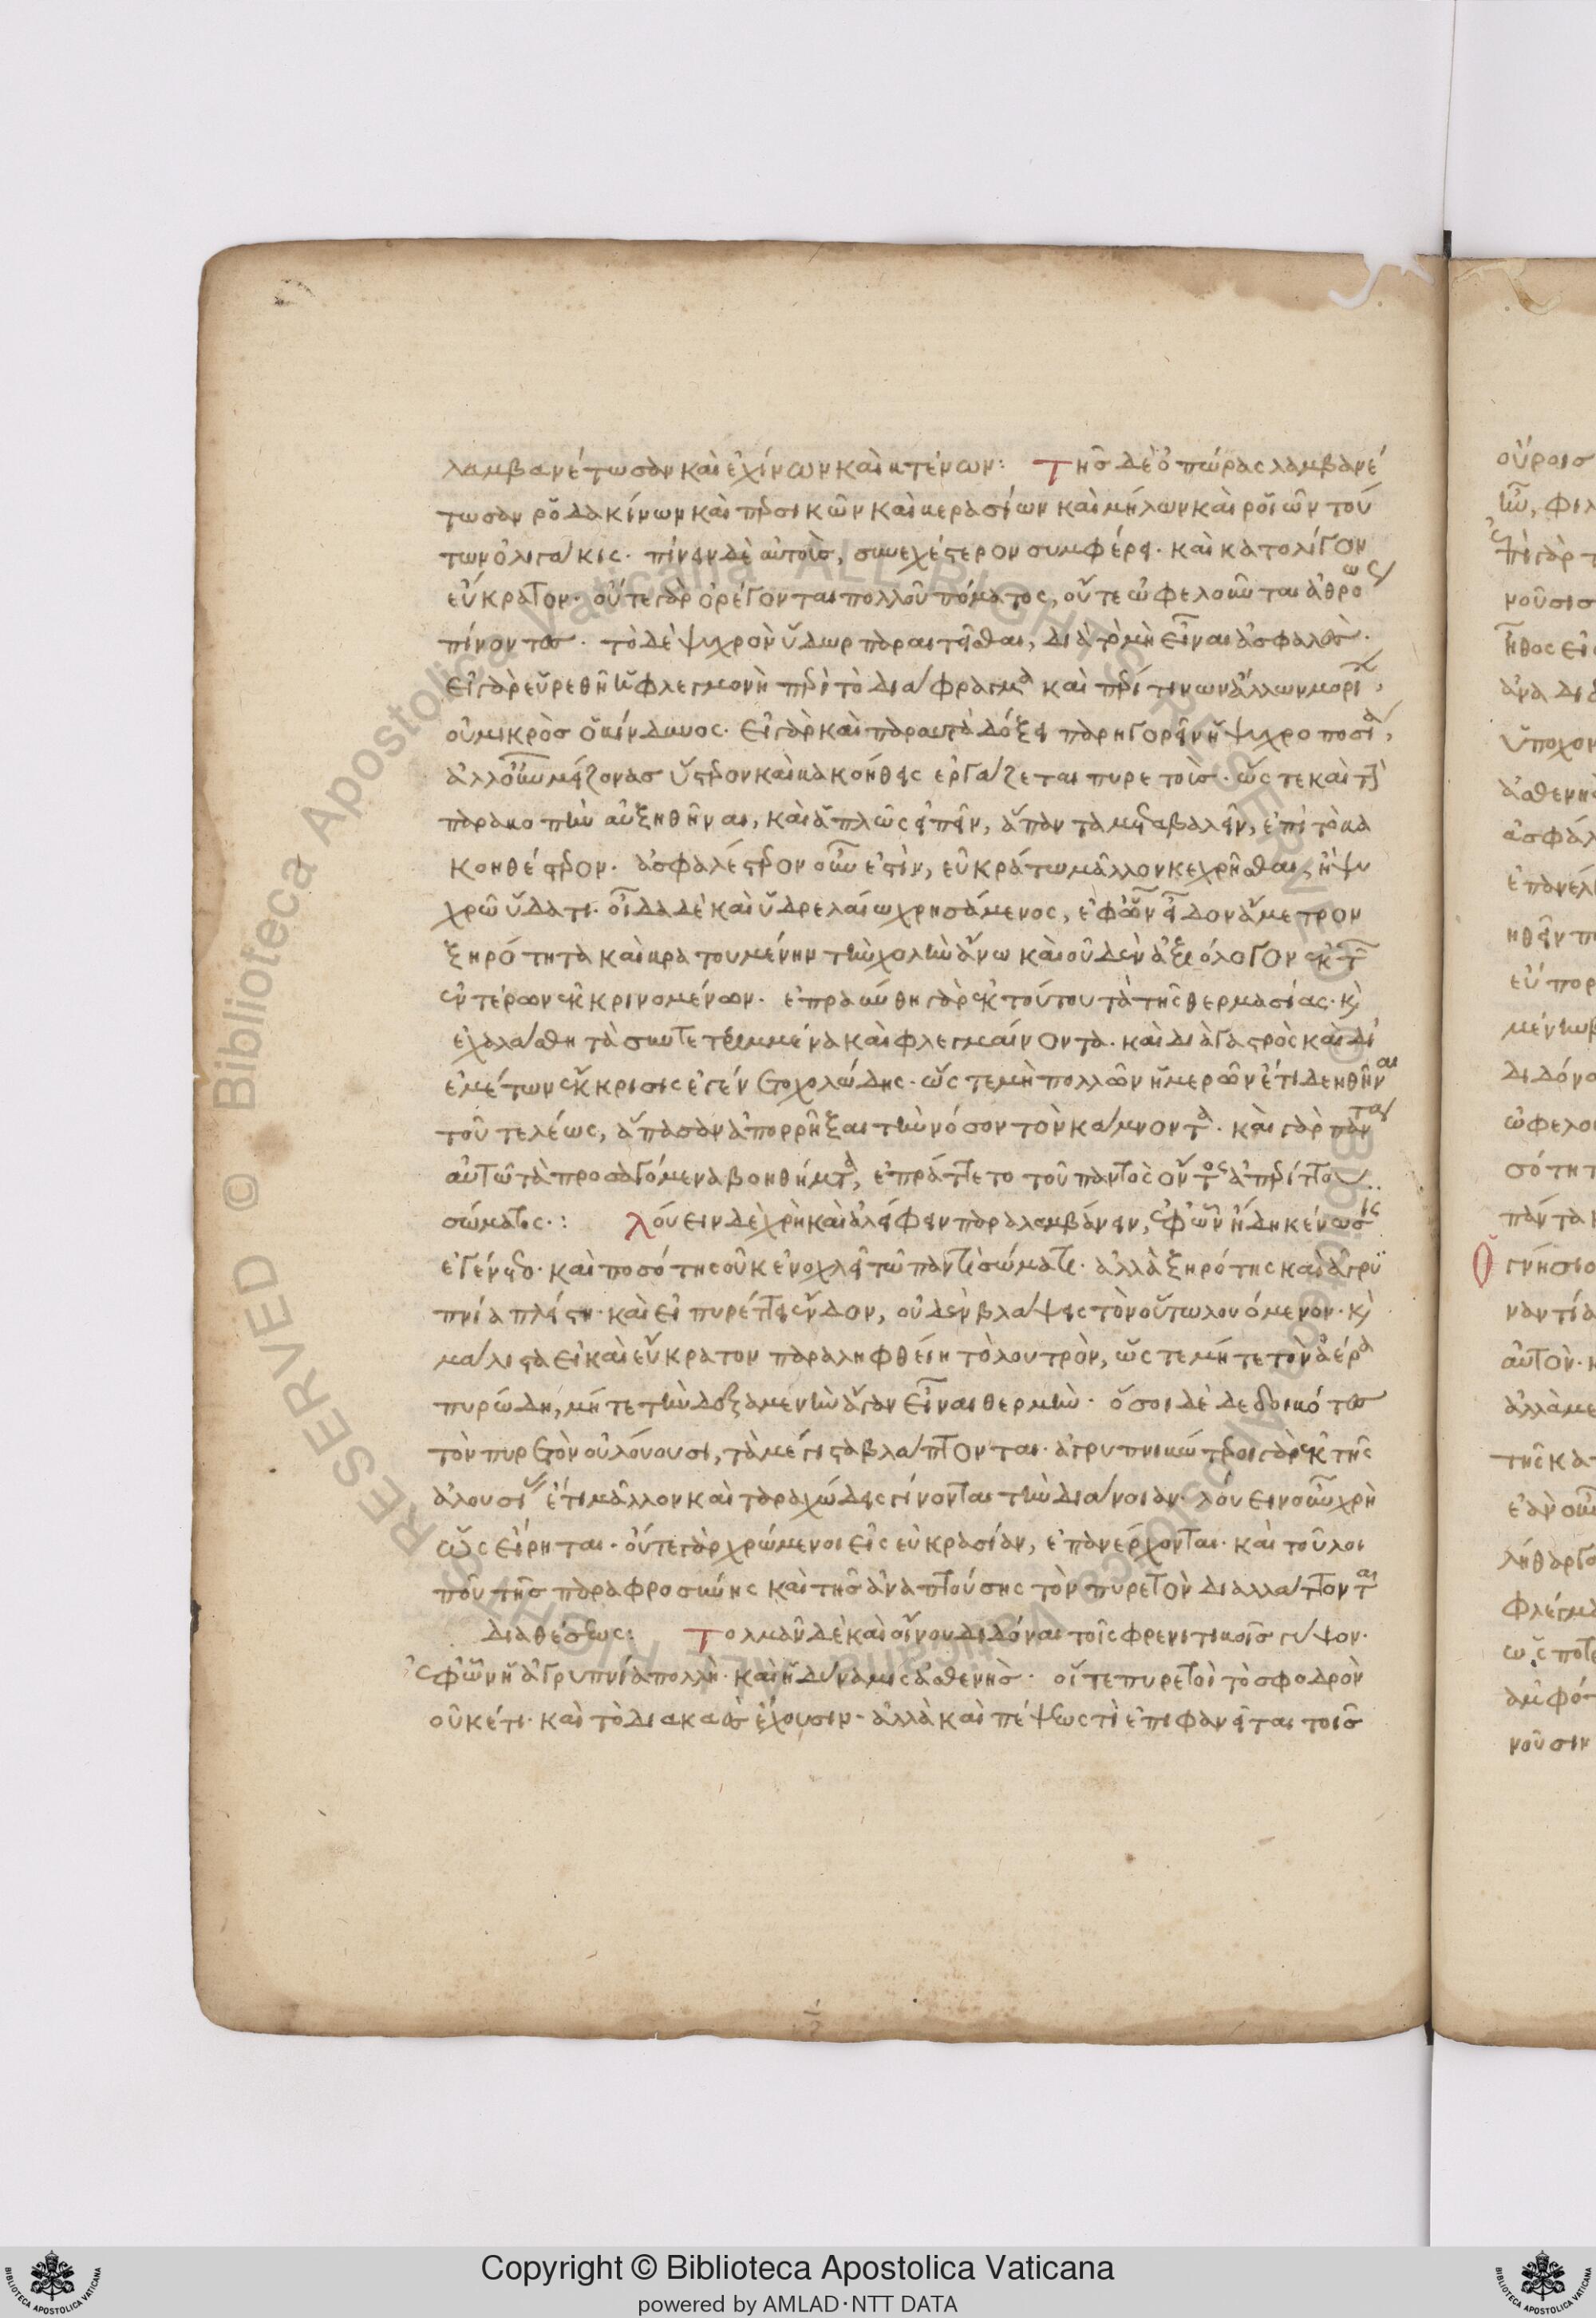 λαμβανέτωσαν καὶ ἐχίνων καὶ κτένων: Τῆς δὲ ὀπώρας λαμβανέ
τωσαν ῥοδακίνων καὶ περσικῶν καὶ κερασίων καὶ μήλων καὶ ῥοϊῶν τού
των ὀλιγάκις. πίνειν δὲ αὐτοῖς, συνεχέστερον συμφέρει. καὶ κατολίγον
εὔκρατον. οὔτε γὰρ ὀρέγονται πολλοῦ πόματος, οὔτε ὠφελοῦνται ἀθρόως
πίνοντες. τὸ δὲ ψυχρὸν ὕδωρ παραιτεῖσθαι, διὰ τὸ μὴ εἶναι ἀσφαλὲς.
εἰ γὰρ εὑρεθῆ ἡ φλεγμονὴ περὶ τὸ διάφραγμα καὶ περί τινων ἄλλων μορίων,
οὐ μικρὸς ὁ κίνδυνος. εἰ γὰρ καὶ παραυτὰ δόξει παρηγορεῖν ἡ ψυχροποσία,
ἀλλοῦν μείζονας ὕστερον καὶ κακοήθεις ἐργάζεται πυρετοὺς. ὥστε καὶ τὴν
παρακοπὴν αὐξηθῆναι, καὶ ἁπλῶς εἰπεῖν, ἅπαντα μεταβαλεῖν, ἐπὶ τὸ κα
κοηθέστερον. ἀσφαλέστερον οὖν ἐστὶν, εὐκράτω μᾶλλον κεχρῆσθαι, ἢ ψυ
χρῶ ὕδατι. οἶδα δὲ καὶ ὑδρελαίω χρησάμενος, ἐφ ὧν εἶδον ἄμετρον
ξηρότητα καὶ κρατουμένην τὴν χολὴν ἄνω καὶ οὐδὲν ἀξιόλογον ἐκ τῶν
ἐντέρων ἐκκρινομένων. ἐπραΰνθη γὰρ ἐκ τούτου τὰ τῆς θερμασίας. καὶ
ἐχαλάσθη τὰ συντετριμμένα καὶ φλεγμαίνοντα. καὶ διὰ γαστρὸς καὶ δι
ἐμέτων ἔκκρισις ἐγένετο χολώδης. ὥστε μὴ πολλῶν ἡμερῶν ἔτι δεηθῆναι
τοῦ τελέως, ἅπασαν ἀπορρῆξαι τὴν νόσον τὸν κάμνοντα. καὶ γὰρ πάντα
αὐτῶ τὰ προσαγόμενα βοηθήματα, ἐπράττετο τοῦ παντὸς ὄντος ἀπερίττου
σώματος.: Λούειν δὲ χρὴ καὶ ἀλείφειν παραλαμβάνειν, ἐφ ὧν ἤδη κένωσις
ἐγένετο. καὶ ποσότης οὐκ ἐνοχλεῖ τῶ παντὶ σώματι. ἀλλὰ ξηρότης καὶ ἀγρυ
πνία πλείστη. καὶ εἰ πυρέττει ἔνδον, οὐδὲν βλάψεις τὸν οὕτω λουόμενον. καὶ
μάλιστα εἰ καὶ εὔκρατον παραληφθείη τὸ λουτρὸν, ὥστε μήτε τὸν ἀέρα
πυρώδη, μήτε τὴν δεξαμενὴν ἄγαν εἶναι θερμὴν. ὅσοι δὲ δεδοικότες
τὸν πυρετὸν οὐ λούουσι, τὰ μέγιστα βλάπτονται. ἀγρυπνικώτεροι γὰρ ἐκ τῆς
ἀλουσίας ἔτι μᾶλλον καὶ ταραχώδεις γίνονται τὴν διάνοιαν. λούειν οὖν χρὴ
ὡς εἴρηται. οὕτε γὰρ χρώμενοι εἰς εὐκρασίαν, ἐπανέρχονται. καὶ τοῦ λοι
ποῦ τῆς παραφροσύνης καὶ τῆς ἀναπτούσης τὸν πυρετὸν διαλλάττονται
διαθέσεως: Τολμᾶν δὲ καὶ οἶνον διδόναι τοῖς φρενιτικοῖς γύψον.
ἐφ ὧν ἡ ἀγρυπνία πολλὴ. καὶ ἡ δύναμις ἀσθενὴς. οἵ τε πυρετοὶ τὸ σφοδρὸν
οὐκέτι. καὶ τὸ διακαὲς ἔχουσιν. ἀλλὰ καὶ πέψεως τὶ ἐπιφανεῖται τοῖς